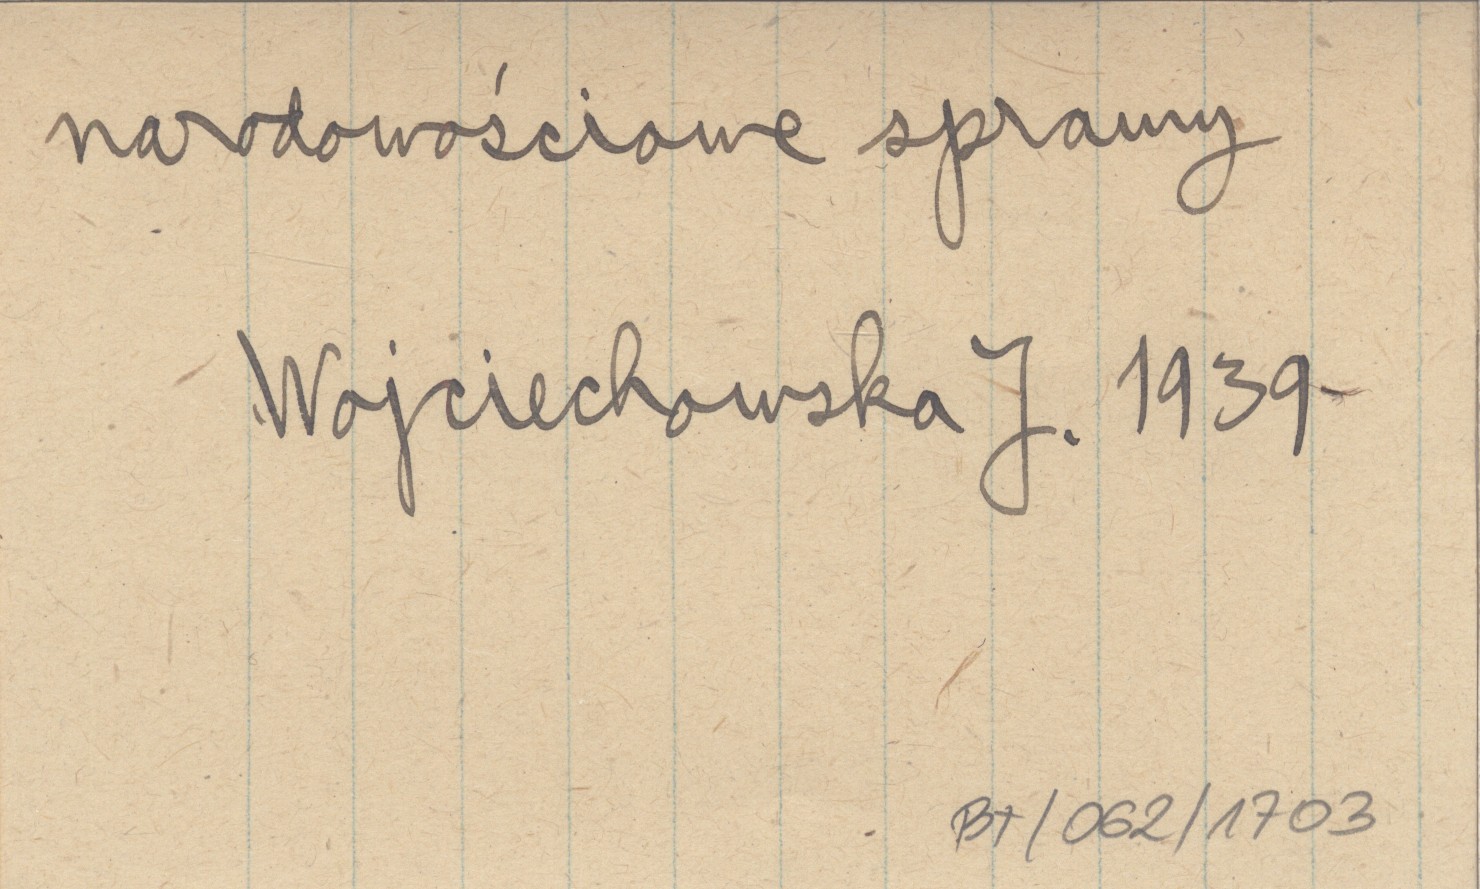 narodowościowe sprawy
Wojciechowska J. 1939-
Bt/062/1703